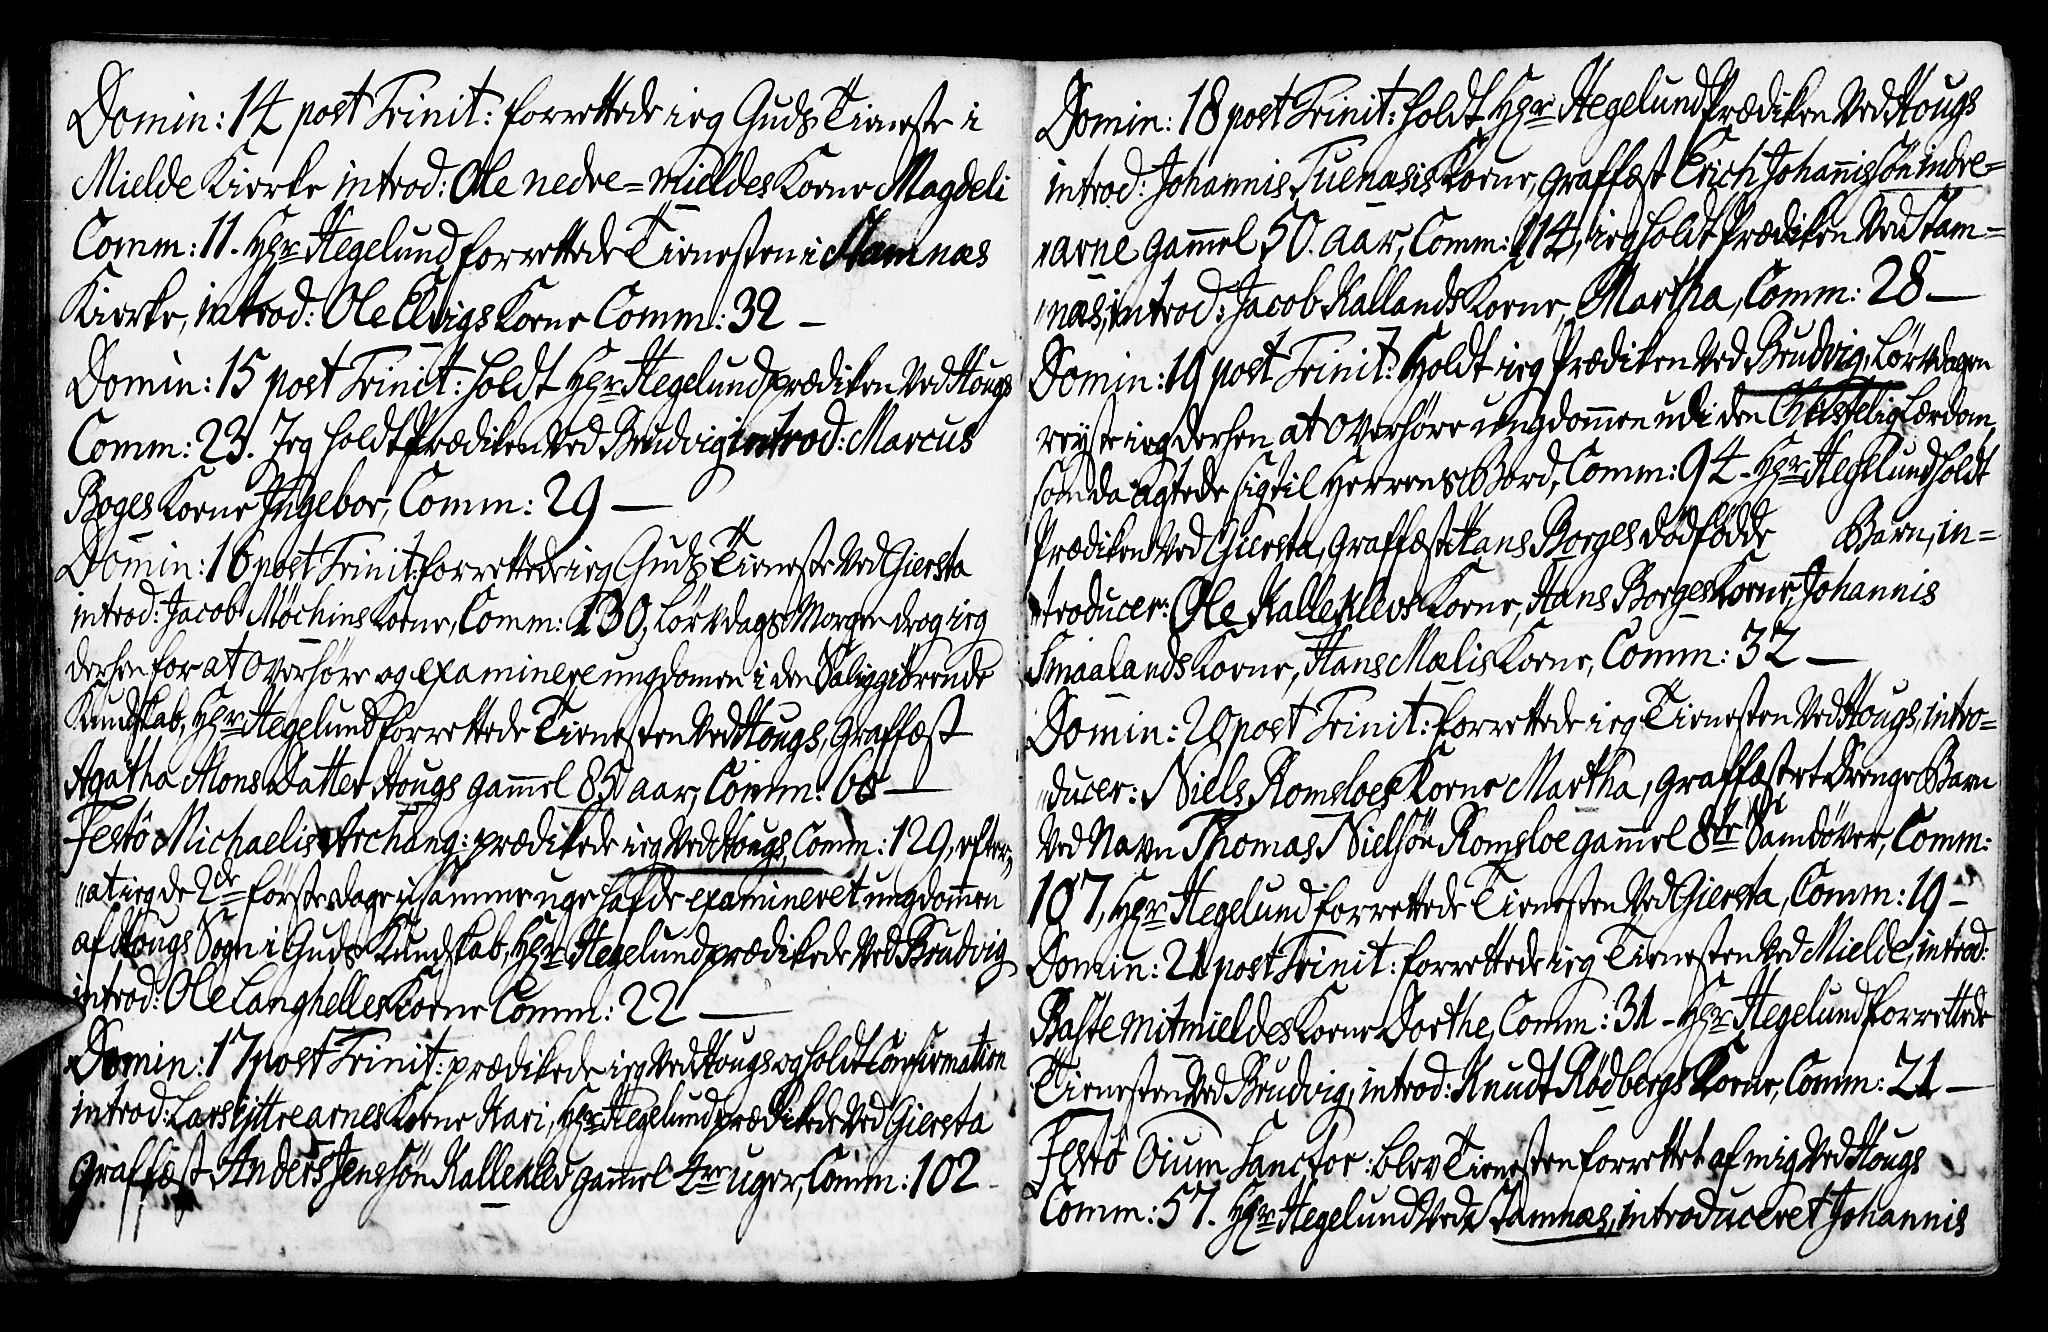 Domin: 14 post Trinit: forrettede ieg Guds Tieneste i
Mielde Kierke introd: Ole nedre=mieldes Kone Magdeli
Comm: 11. Hr Hegelund forrettede Tienesten i Stamnæs
Kierke, introd: Ole Elvigs Kone Comm: 32 –
Domin: 15 post Trinit: holdt Hr Hegelund prædiken Ved Hougs
Comm: 23. Jeg holdt Prædiken Ved Brudvig introd: Marcus
Boges Kone Ingebor, Comm: 29 –
Domin: 16 post Trinit: forrettede ieg Guds Tieneste Ved Giersta
introd: Jacob Møchins Kone, Comm: 130, Løverdags Morgen drog ieg
derhen for at Overhøre og examinere ungdomen i den Saliggiørende
Kundskab, Hr Hegelund forrettede Tienesten Ved Hougs, Graffæst
Agatha Mons Datter Hougs gammel 85 aar, Comm: 60 –
Festo Michaelis Archang: prædikede ieg Ved Hougs, Comm: 129, efter,,
,,at ieg de 2de første dage i samme uge hafde examineret ungdommen
af Hougs Sogn i Guds Kundskab, Hr Hegelund prædikede Ved Brudvig
introd: Ole Langhelles Kone Comm: 22 –
Domin: 17 post Trinit: prædikede ieg Ved Hougs og holdt Confirmation
introd: Lars Yttrearnes Kone Kari, Hr Hegelund prædikede Ved Giersta
Graffæst Anders Jensøn Kalleklev gammel 4re uger, Comm: 102 –
Domin: 18 post Trinit: holdt Hr Hegelund Prædiken Ved Hougs
introd: Johannis Tuenæsis Kone, graffæst Erich Johannissøn indre=
,,arne gammel 50. aar, Comm: 114, ieg holdt Prædiken Ved Stam=
,,næs, introd: Jacob Kallands Kone, Martha, Comm: 28 –
Domin: 19 post Trinit: Holdt ieg Prædiken Ved Brudvig, Løverdagen
reyste ieg derhen at Overhøre ungdommen udi den Christelig Lærdom,
som da agtede sig til Herrens Bord, Comm: 94 – Hr Hegelund holdt
Prædiken Ved Giersta, graffæst Hans Borges dødfødde Barn, in=
,,troducer: Ole Kalleklevs Kone, Hans Borges Kone, Johannis
Smaalands Kone, Hans Mælis Kone, Comm: 32 –
Domin: 20 post Trinit: forrettede ieg Tienesten Ved Hougs, intro=
,,ducer: Niels Romsloes Kone Martha, graffæst et Drenge Barn
Ved Navn Thomas Nielsøn Romsloe gammel 8te Samdøver, Comm:
107, Hr Hegelund forrettede Tienesten Ved Giersta, Comm: 19 –
Domin: 21 post Trinit: forrettede ieg Tienesten Ved Mielde, introd:
Baste mitmieldes Kone Dorthe, Comm: 31 – Hr Hegelund forrettede
Tienesten Ved Brudvig, introd: Knudt Rødbergs Kone, Comm: 21 –
Festo Oium Sanctor: blev Tienesten forrettet af mig Ved Hougs
Comm: 57. Hr Hegelund Ved Stamnæs, introduceret Johannis